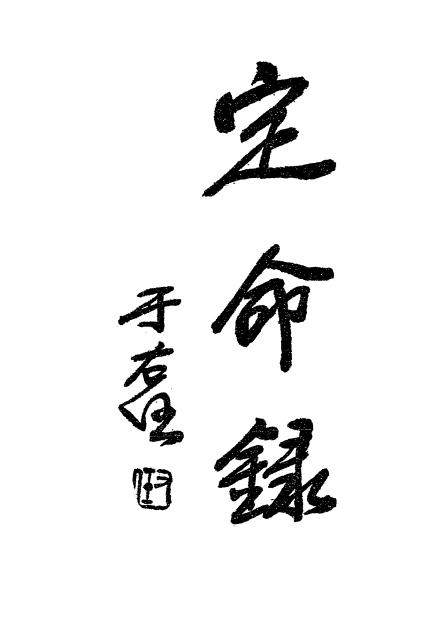 定命録
于右任